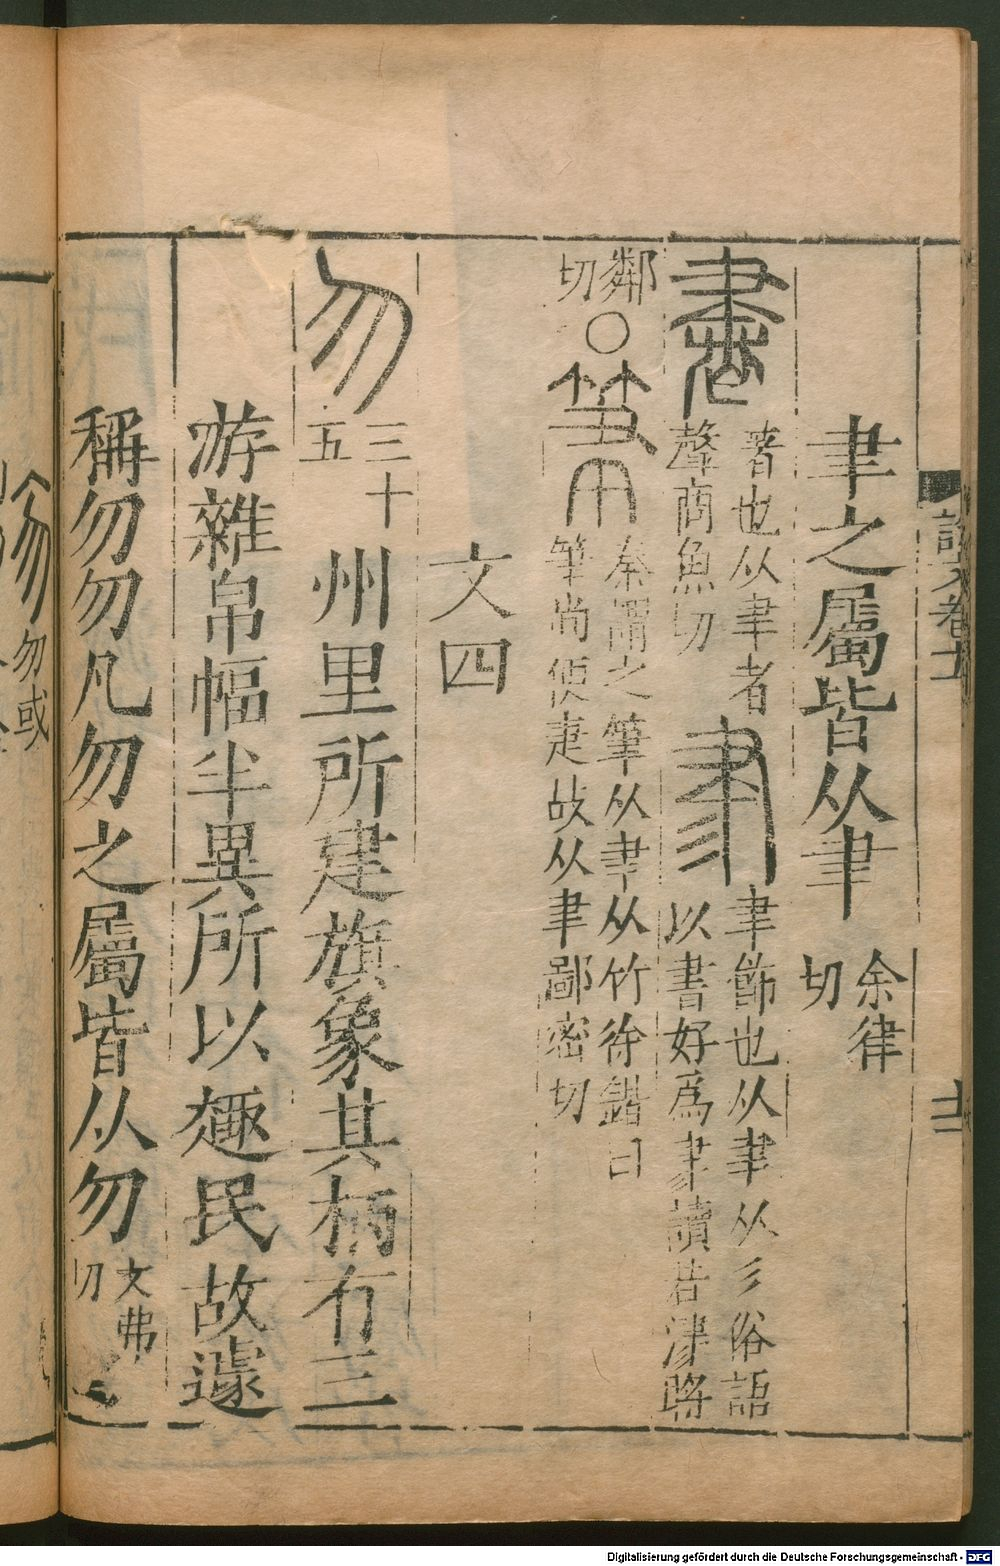 聿之屬皆从聿 余律切
書 著也从聿者聲商魚切 𦘔 聿飾也从聿从彡俗語以書好為𦘔讀若津將
鄰切 〇 筆 秦謂之筆从聿从竹徐鍇曰筆尚便疌故从聿鄙密切
文四
勿 三十五 州里所建旗象其柄有三
游雜帛幅半異所以趣民故遽
稱勿勿凡勿之屬皆从勿 文弗切
勿或
Digitalisierung gefördert durch die Deutsche Forschungsgemeinschaft - DFG